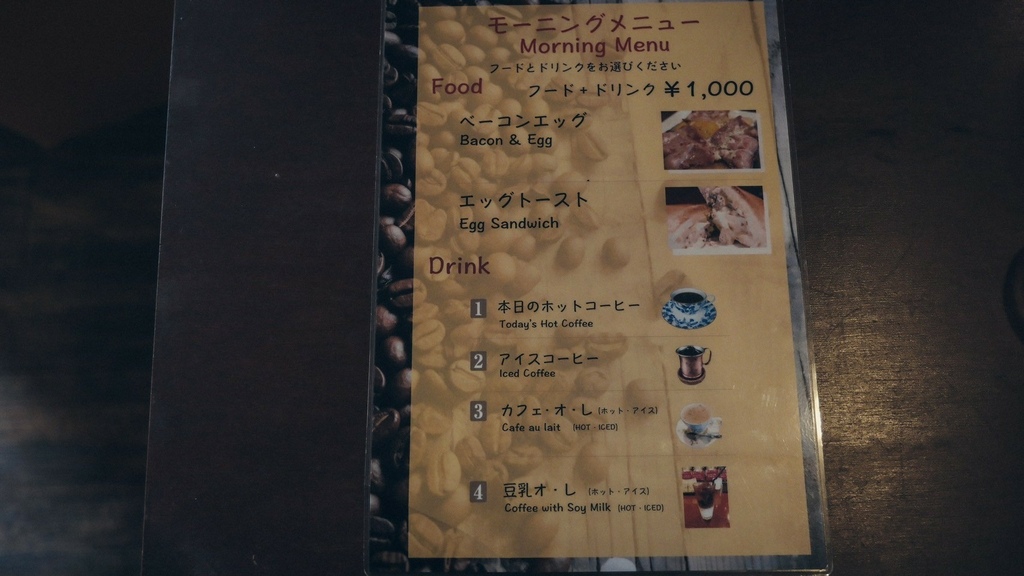 モーニングメニュー
Morning Menu
フードとドリンクをお選びください
Food フード+ドリンク ¥1,000
ベーコンエッグ
Bacon & Egg
エッグトースト
Egg Sandwich
Drink
1 本日のホットコーヒー
Today's Hot Coffee
2 アイスコーヒー
Iced Coffee
3 カフェ・オ・レ (ホット・アイス)
Cafe au lait (HOT・ICED)
4 豆乳オ・レ (ホット・アイス)
Coffee with Soy Milk (HOT・ICED)